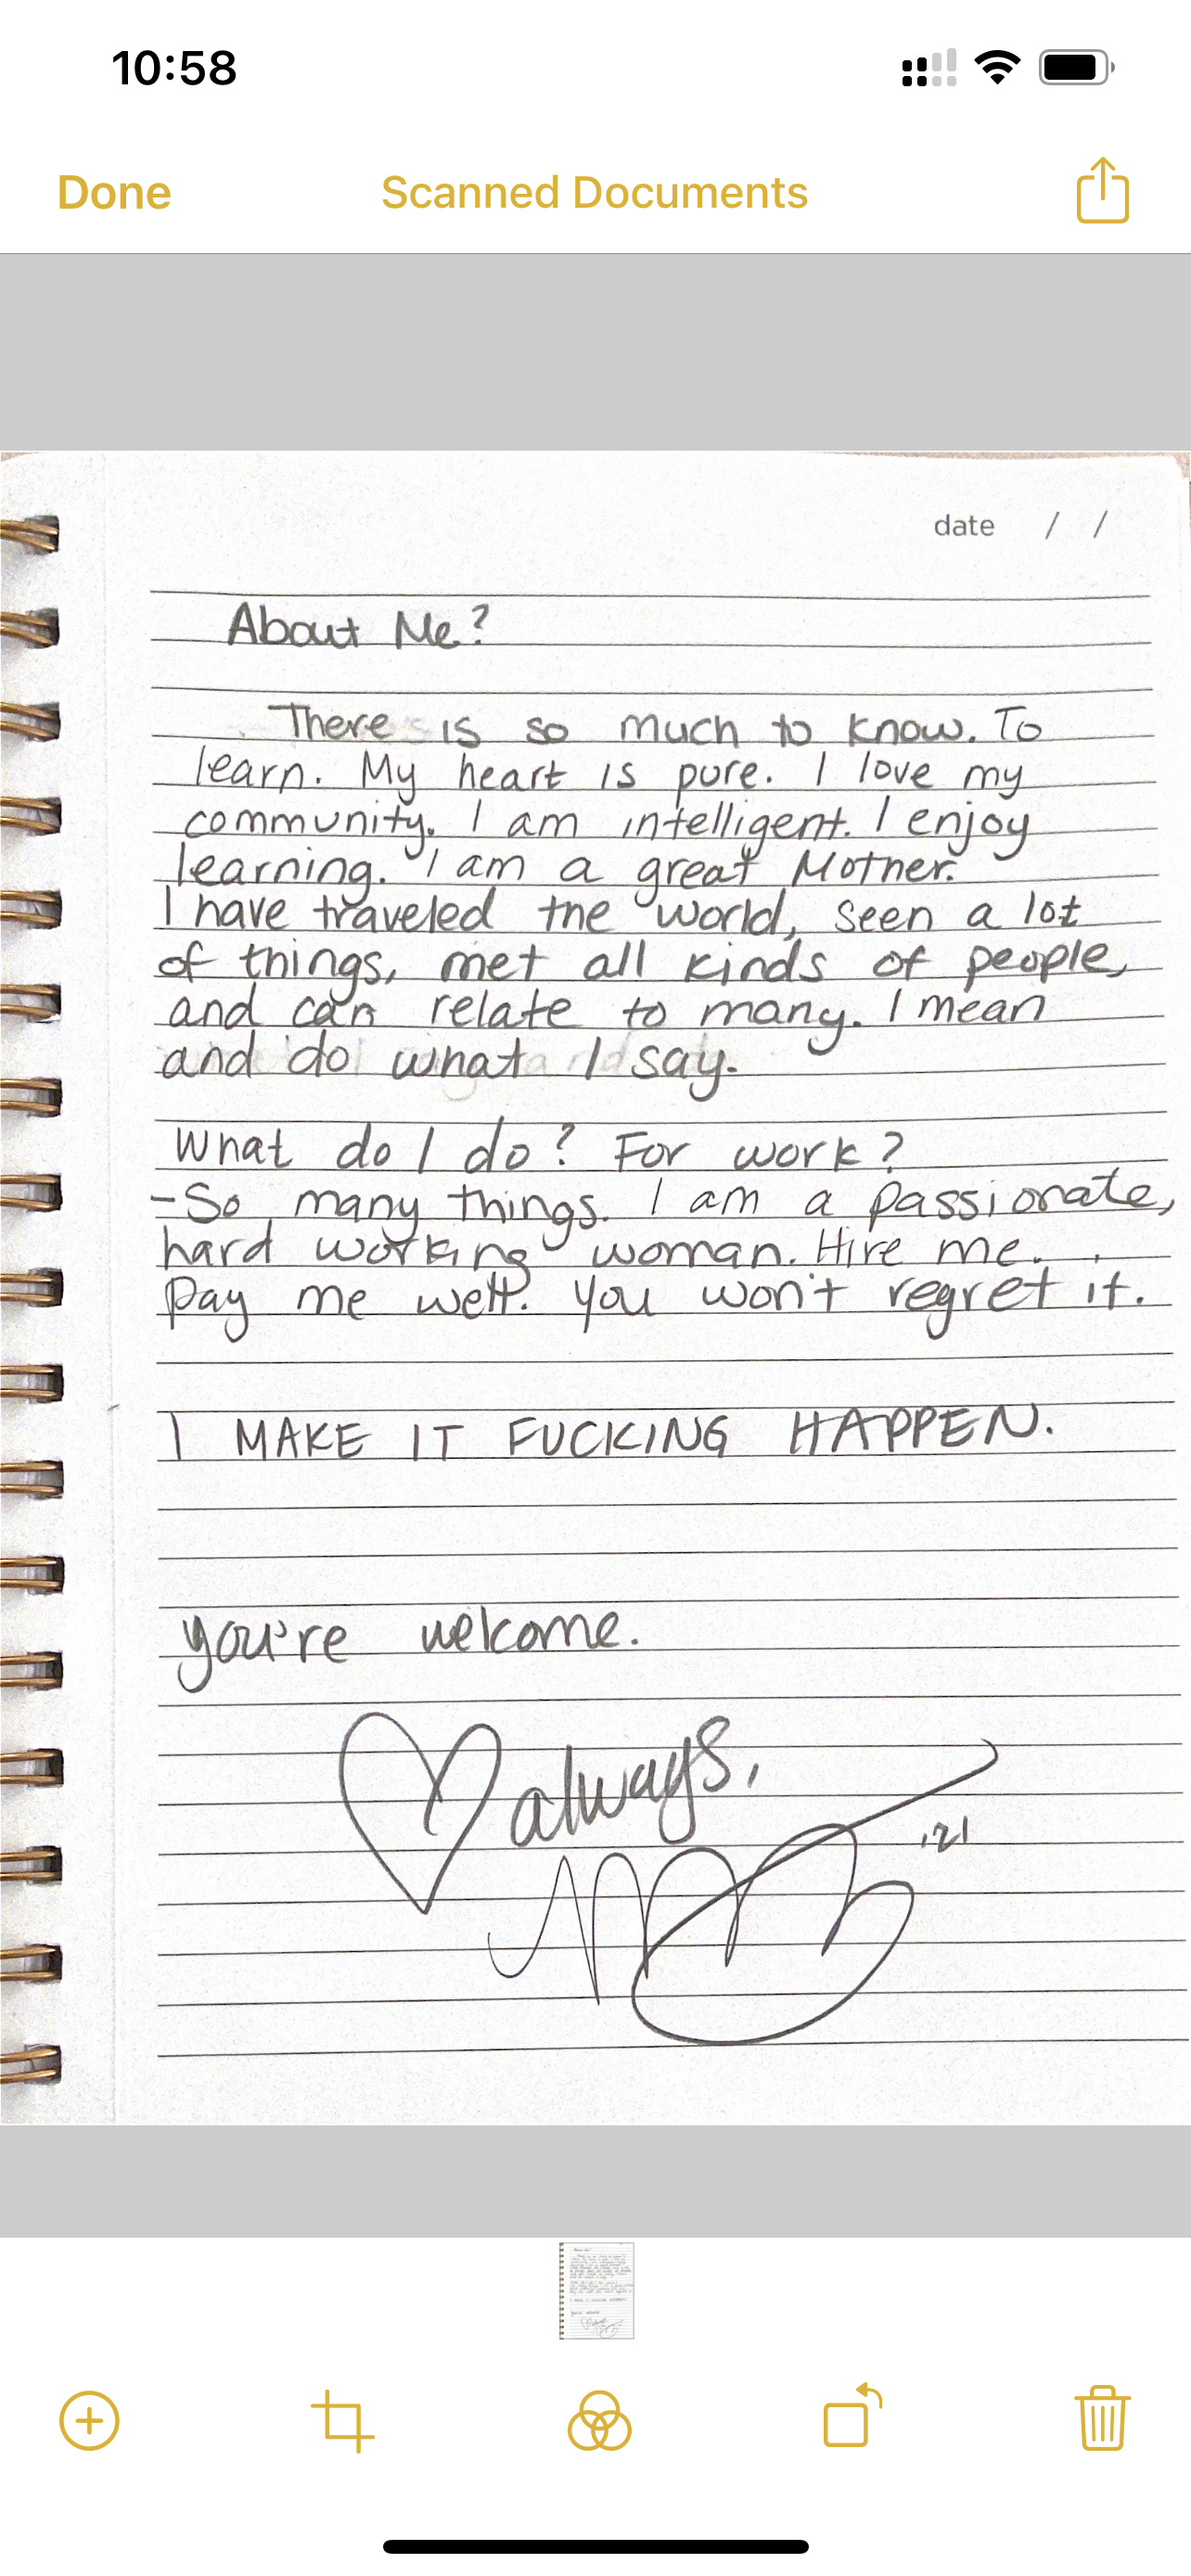 10:58
Done Scanned Documents
date / /
About Me?
There is so much to know. To
learn. My heart is pure. I love my
community. I am intelligent. I enjoy
learning. I am a great Mother.
I have traveled the world, seen a lot
of things, met all kinds of people,
and can relate to many. I mean
and do what I say.
What do I do? For work?
-So many things. I am a passionate,
hard working woman. Hire me.
Pay me well. You won't regret it.
I MAKE IT FUCKING HAPPEN.
you're welcome.
always,
'21